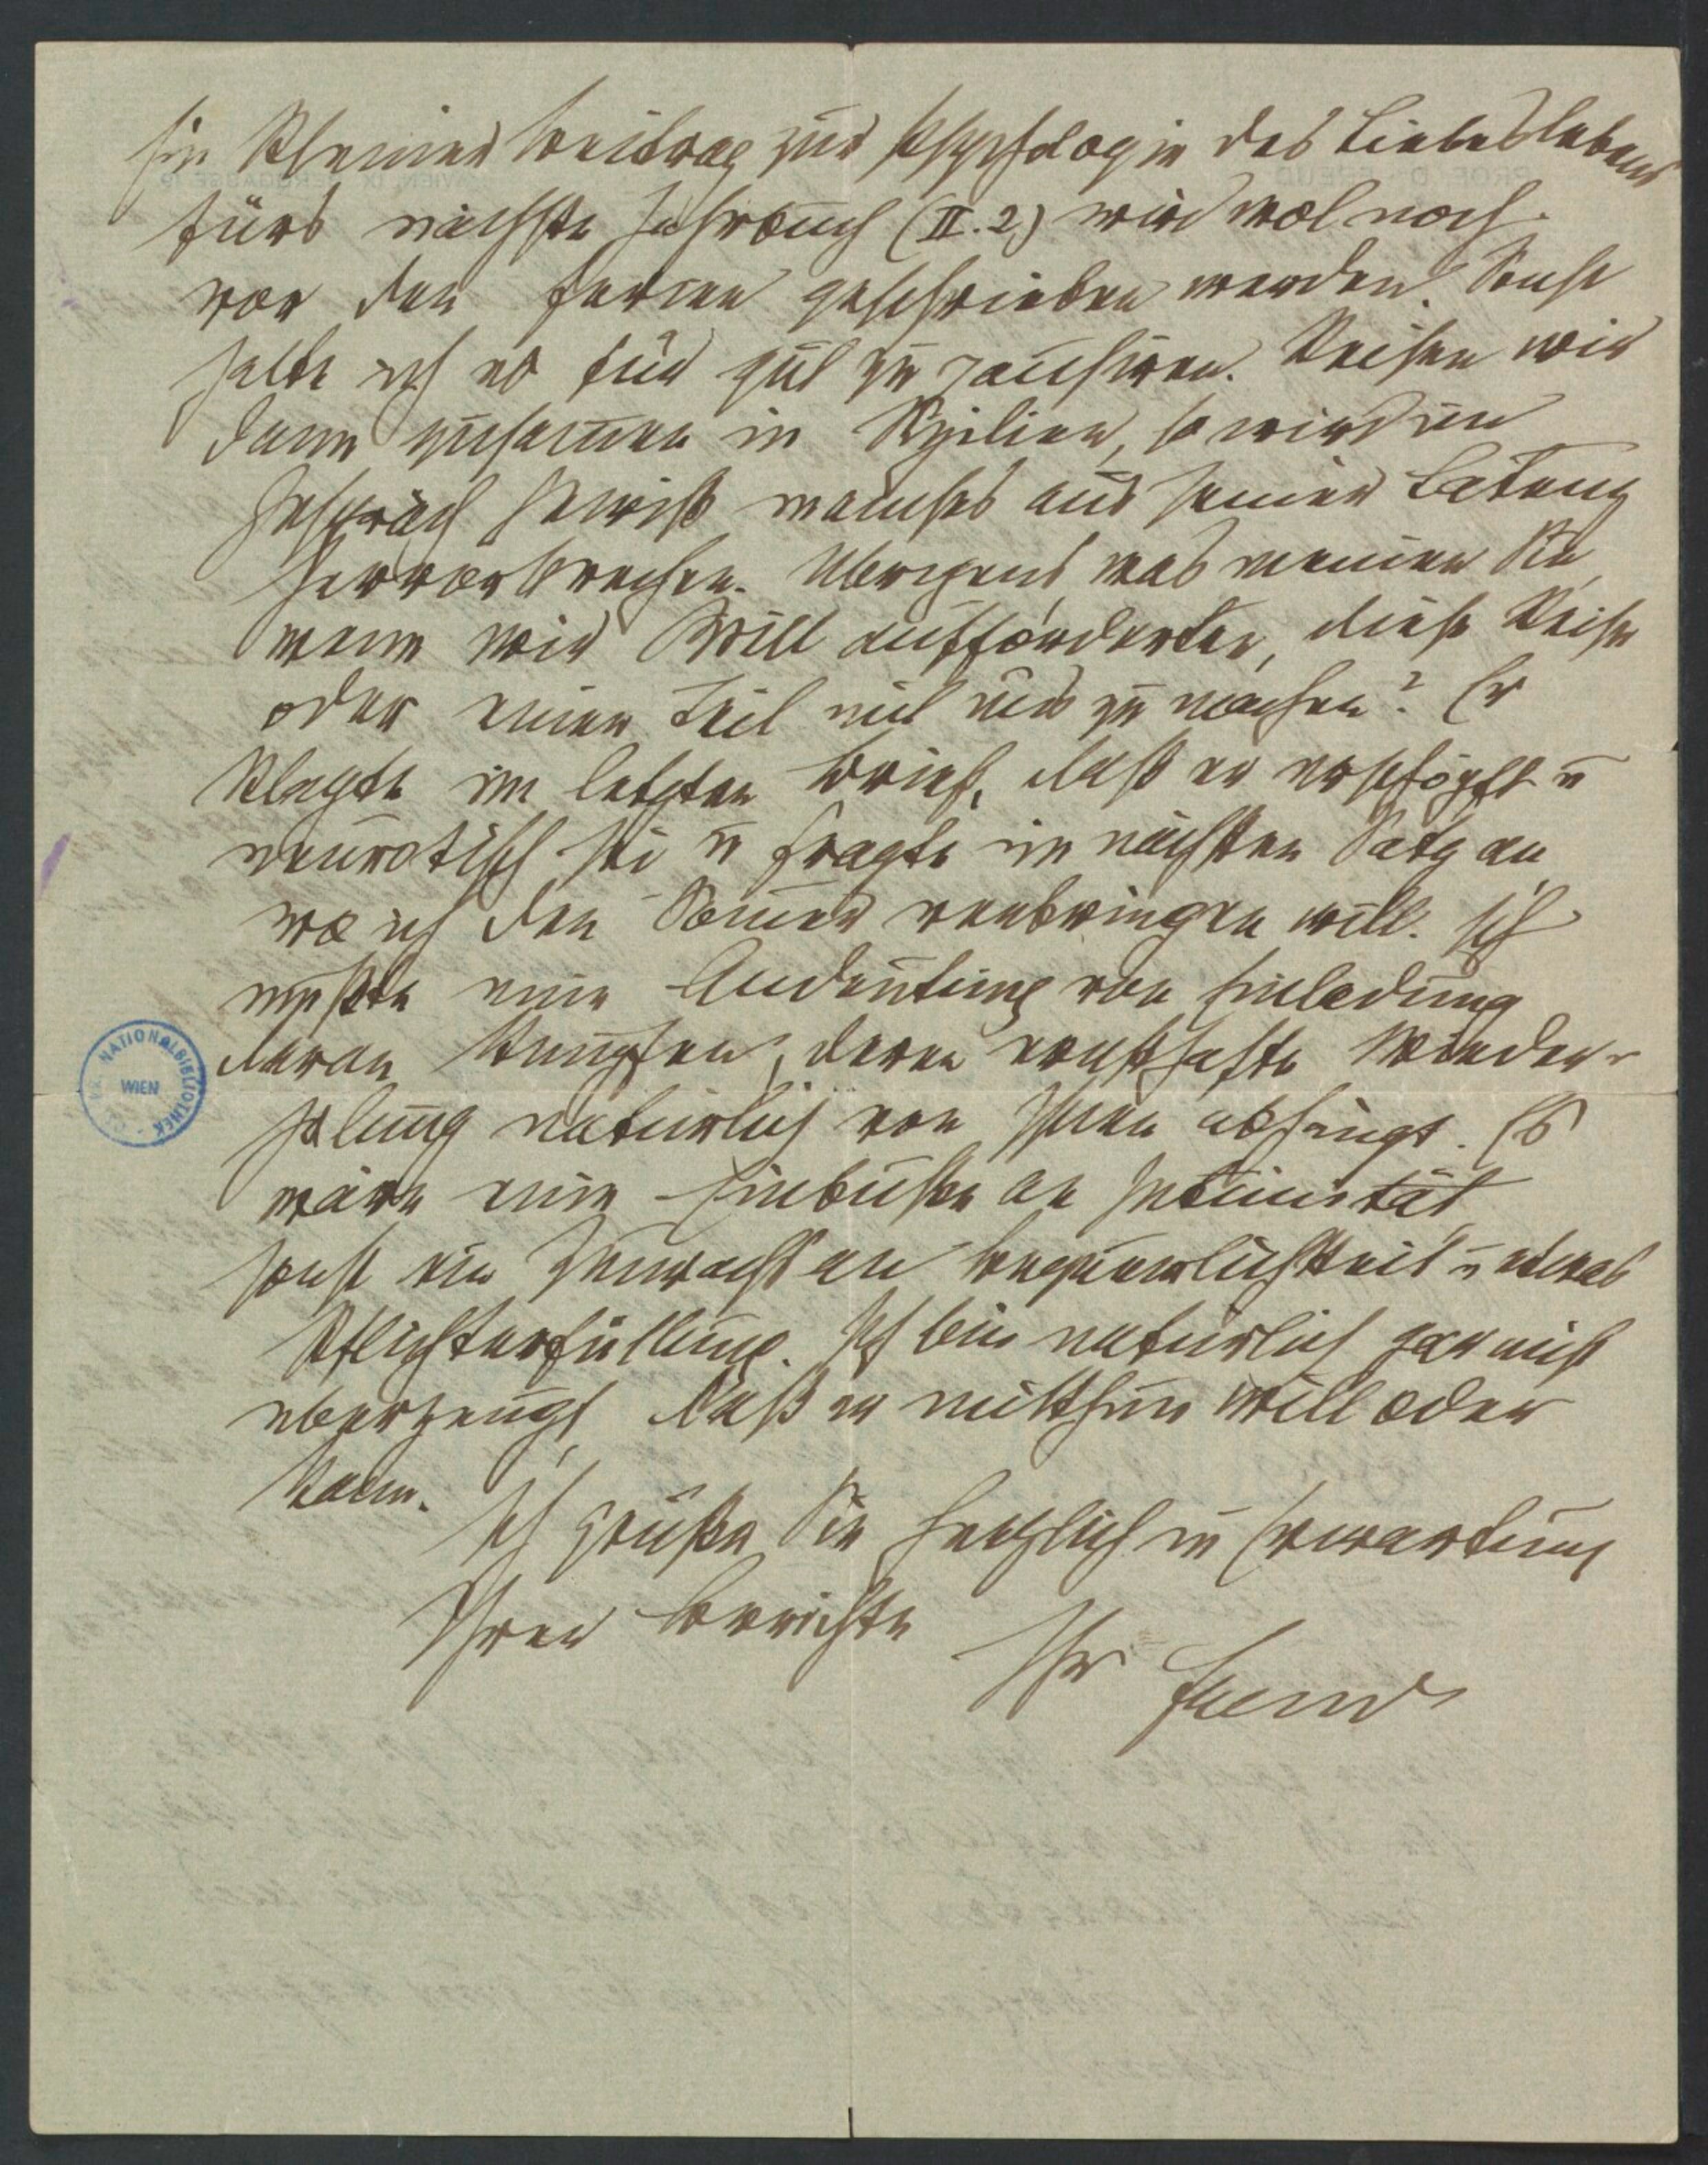 Ein kleiner Beitrag zur Psychologie des Liebeslebens
fürs nächste Jahrbuch (II.2) wird wol noch
vor den Ferien geschrieben werden. Sonst
halte ich es für gut zu pausiren. Reisen wir
dann zusammen in Sizilien, so wird im
Gespräch gewiß manches aus seiner Latenz
hervorbrechen. Übrigens, was meinen Sie,
wenn wir Brill aufforderten, diese Reise
oder einen Teil mit uns zu machen? Er
klagte im letzten Brief, daß er erschöpft u
neurotisch sei u fragte im nächsten Satz an,
wo ich den Sommer verbringen will. Ich
mußte eine Andeutung von Einladung
daran knüpfen, deren ernsthafte Wieder-
holung natürlich von Ihnen abhängt. Es
wäre eine Einbuße an Intimität,
sonst ein Zuwachs an Bequemlichkeit u etwas
Pflichterfüllung. Ich bin natürlich gar nicht
überzeugt, daß er mitthun will oder
kann.
Ich grüße Sie herzlich in Erwartung
Ihrer Berichte
Ihr Freud
NATIONALBIBLIOTHEK
WIEN